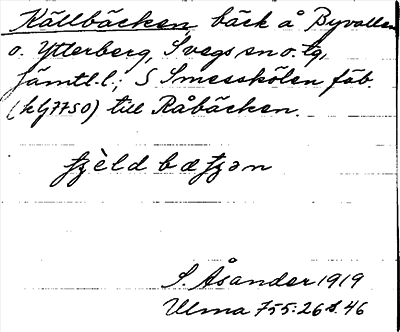 Källbäcken, bäck å Byvallen
o. Ytterberg, Svegs sn o. tg,
Jämtl. l; S Smesskölen fäb.
till Råbäcken.
S. Åsander 1919
Ulma 755:26 s. 46